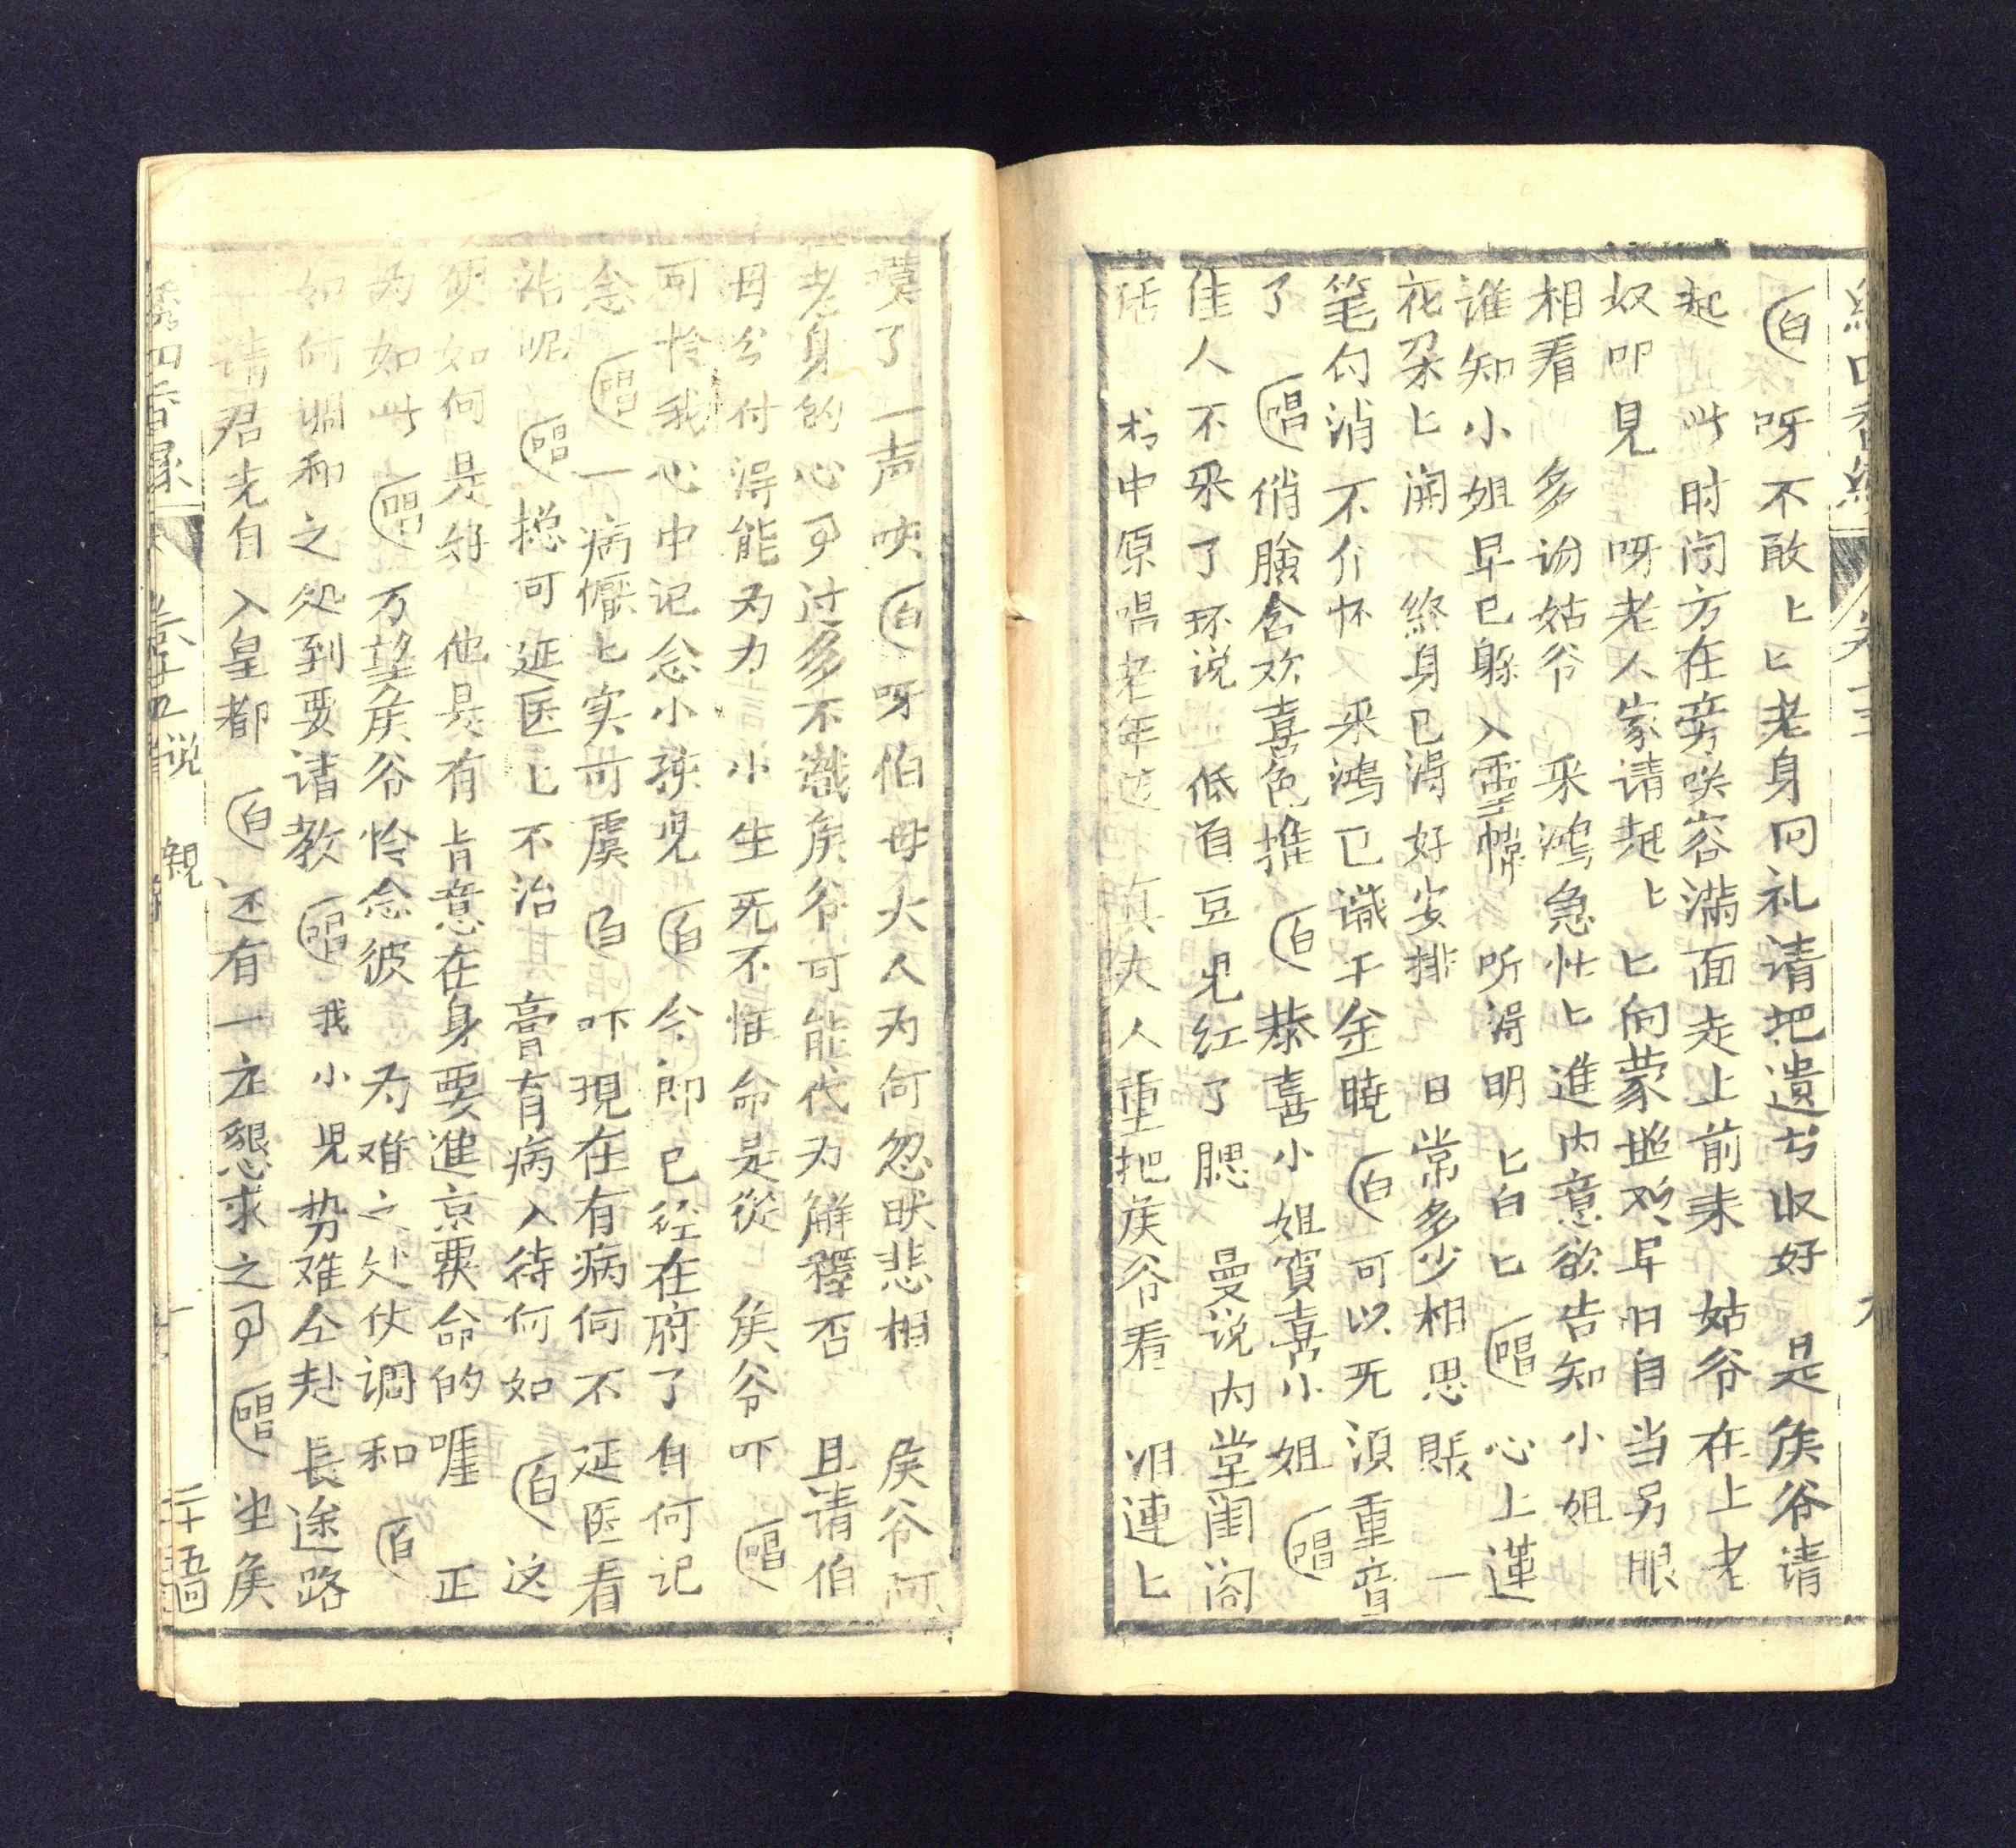 白 呀不敢匕匕老身回礼请把遗书收好 是侯爷请
起 此时闻方在旁咲容满面走上前来 姑爷在上老
奴叩見 呀老人家请起匕匕向蒙照 早日自当另眼
相看 多谢姑爷 采鸿急忙匕進内意欲告知小姐
谁知小姐早已躲入靈幃 听得明匕白匕 唱 心上蓮
花朵匕開 終身已得好安排 日常多少相思賬 一
笔勾消不介怀 采鸿已識千金曉 白 可以无須重音
了 唱 俏臉含欢喜色推 白 恭喜小姐賀喜小姐 唱
佳人不采了环说 低首 見红了腮 曼说内堂闺阁
中原唱老年 夫人重把侯爷看 泪連匕
嘆了一声咲 白 呀伯母大人为何忽然悲相 侯爷阿
老身的心事过多不識侯爷可能代为解釋否 且请伯
母分付得能为力 小生死不惜命是從 侯爷吓 唱
可怜我心中记念小孩児 白 今郎已经在府了自何记
念 唱 一病懨匕实可虞 白 吓現在有病何不延医看
治呢 唱 摠可延医上不治其膏有病入待何如 白 这
便如何是好 他具有旨意在身要進京覆命的嗄 正
为如此 唱 万望侯爷怜念彼 为难之处仗調和 白
如何調和之処到要请教 唱 我小児势难仝赴長途路
請君先自入皇都 白 还有一庄懇求之事 唱 坐侯
繡四香緣 说親